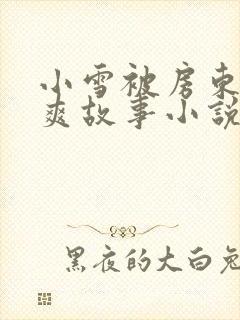 小雪被房东
爽故事小说
黑夜的大白兔